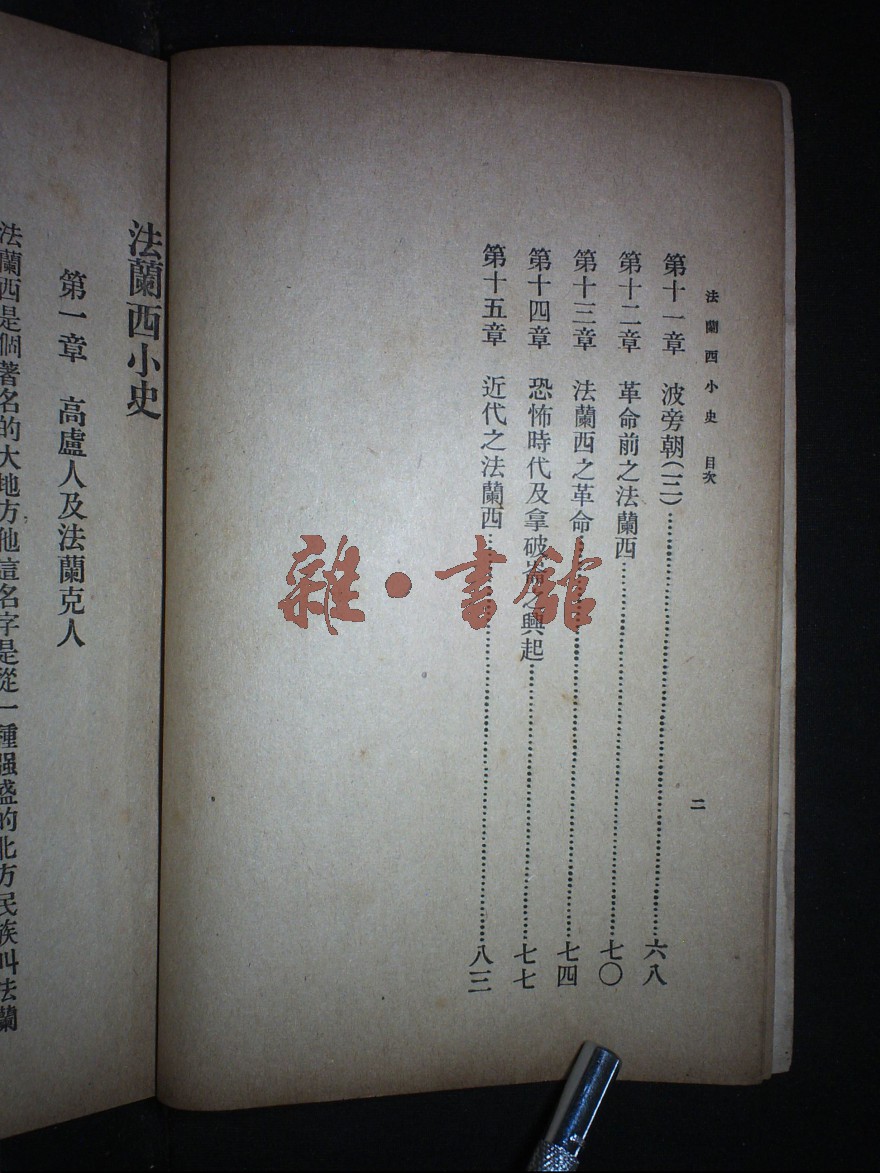 法蘭西小史 目次
二
第十一章 波旁朝(三)……六八
第十二章 革命前之法蘭西……七〇
第十三章 法蘭西之革命……七四
第十四章 恐怖時代及拿破崙之興起……七七
第十五章 近代之法蘭西……八三
雜·書館
法蘭西小史
第一章 高盧人及法蘭克人
法蘭西是個著名的大地方他這名字是從一種强盛的北方民族叫法蘭